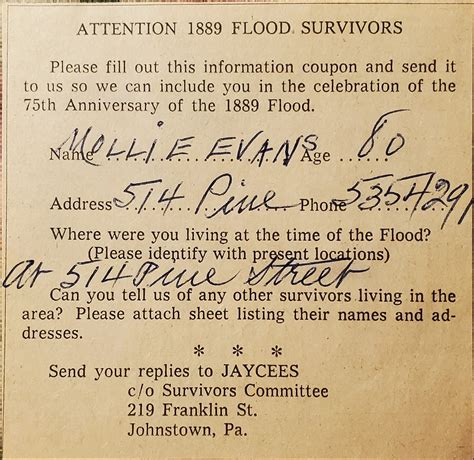 ATTENTION 1889 FLOOD SURVIVORS
Please fill out this information coupon and send it
to us so we can include you in the celebration of the
75th Anniversary of the 1889 Flood.
Name MOLLIE EVANS Age 80
Address 514 Pine Phone 5354291
Where were you living at the time of the Flood?
(Please identify with present locations)
At 514 Pine Street
Can you tell us of any other survivors living in the
area? Please attach sheet listing their names and ad-
dresses.
* * *
Send your replies to JAYCEES
c/o Survivors Committee
219 Franklin St.
Johnstown, Pa.